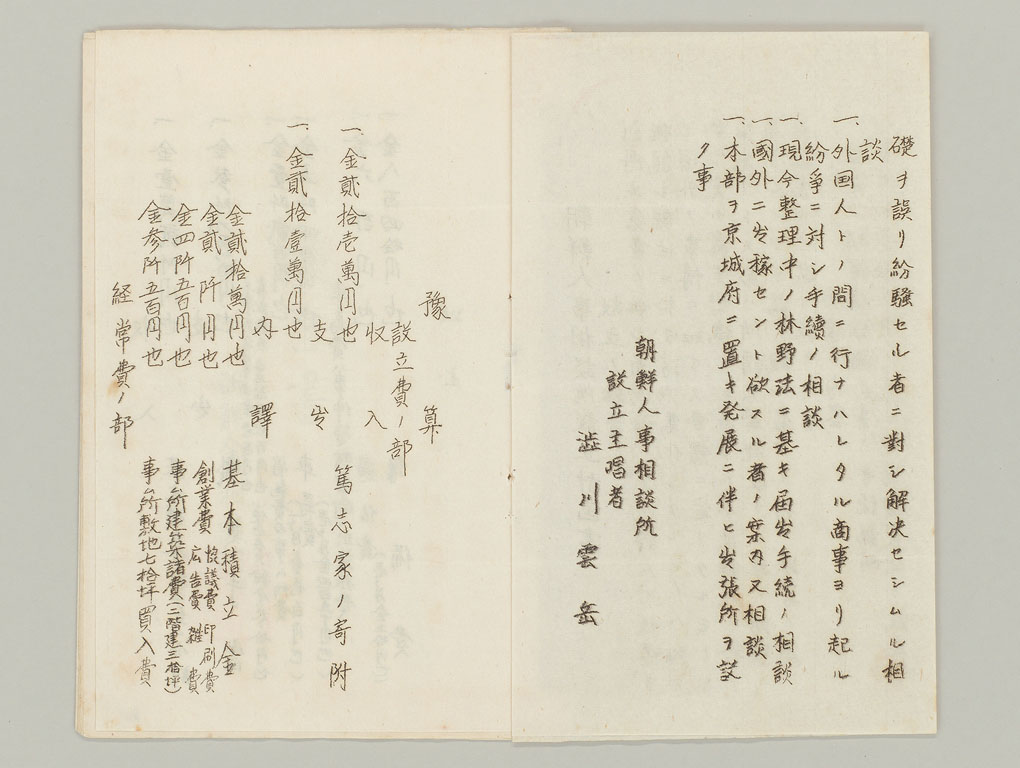 礎ヲ誤リ紛騒セル者ニ對シ解决セシムル相
談
一、外国人トノ間ニ行ナハレタル商事ヨリ起ル
紛爭ニ対シ手續ノ相談
一、現今整理中ノ林野法ニ基キ届出手続ノ相談
一、國外ニ出稼セント欲スル者ノ案内又相談
一、本部ヲ京城府ニ置キ発展ニ伴ヒ出張所ヲ設
ク事
朝鮮人事相談所
設立主唱者
澁川雲岳
豫算
設立費ノ部
収入
一、金貳拾壱萬円也 篤志家ノ寄附
支出
一、金貳拾壹萬円也
内譯
金貳拾萬円也 基本積立金
金貳阡円也 創業費 協議費 印刷費 広告費 雑費
金四阡五百円也 事ム所建築諸費(二階建三拾坪)
金参阡五百円也 事ム所敷地七拾坪買入費
経常費ノ部